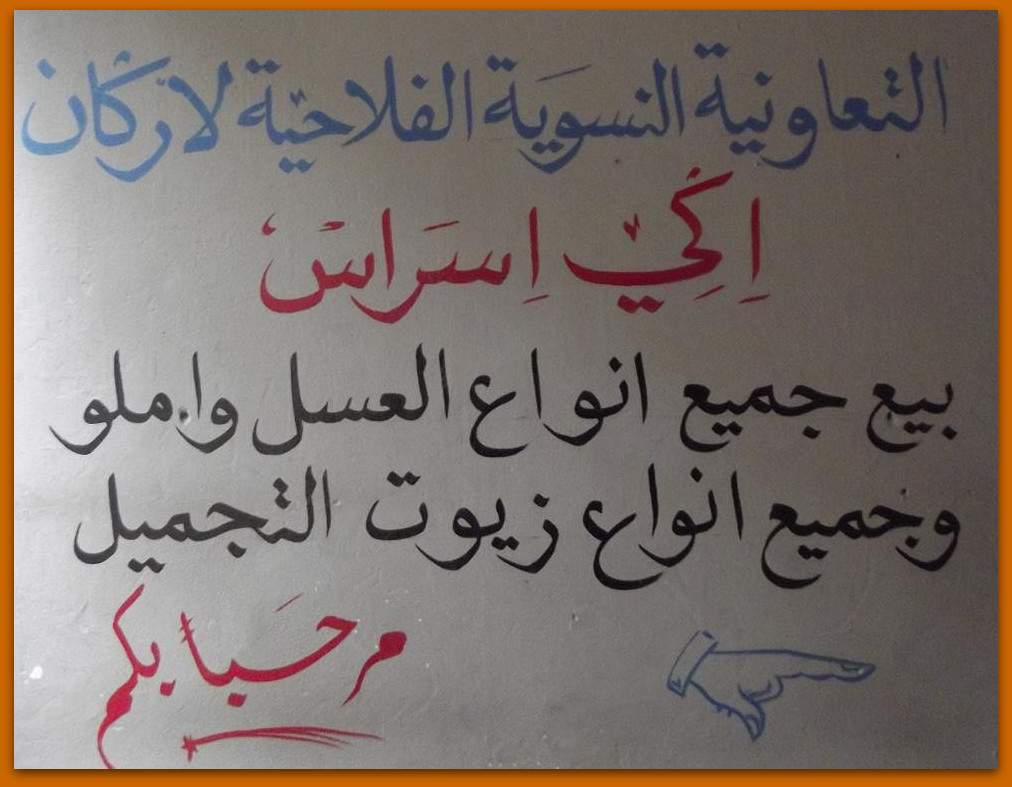 التعاونية النسوية الفلاحية لاركان
اِكِي اِسَراسْ
بيع جميع انواع العسل واملو
وجميع انواع زيوت التجميل
مرحَباً بكم